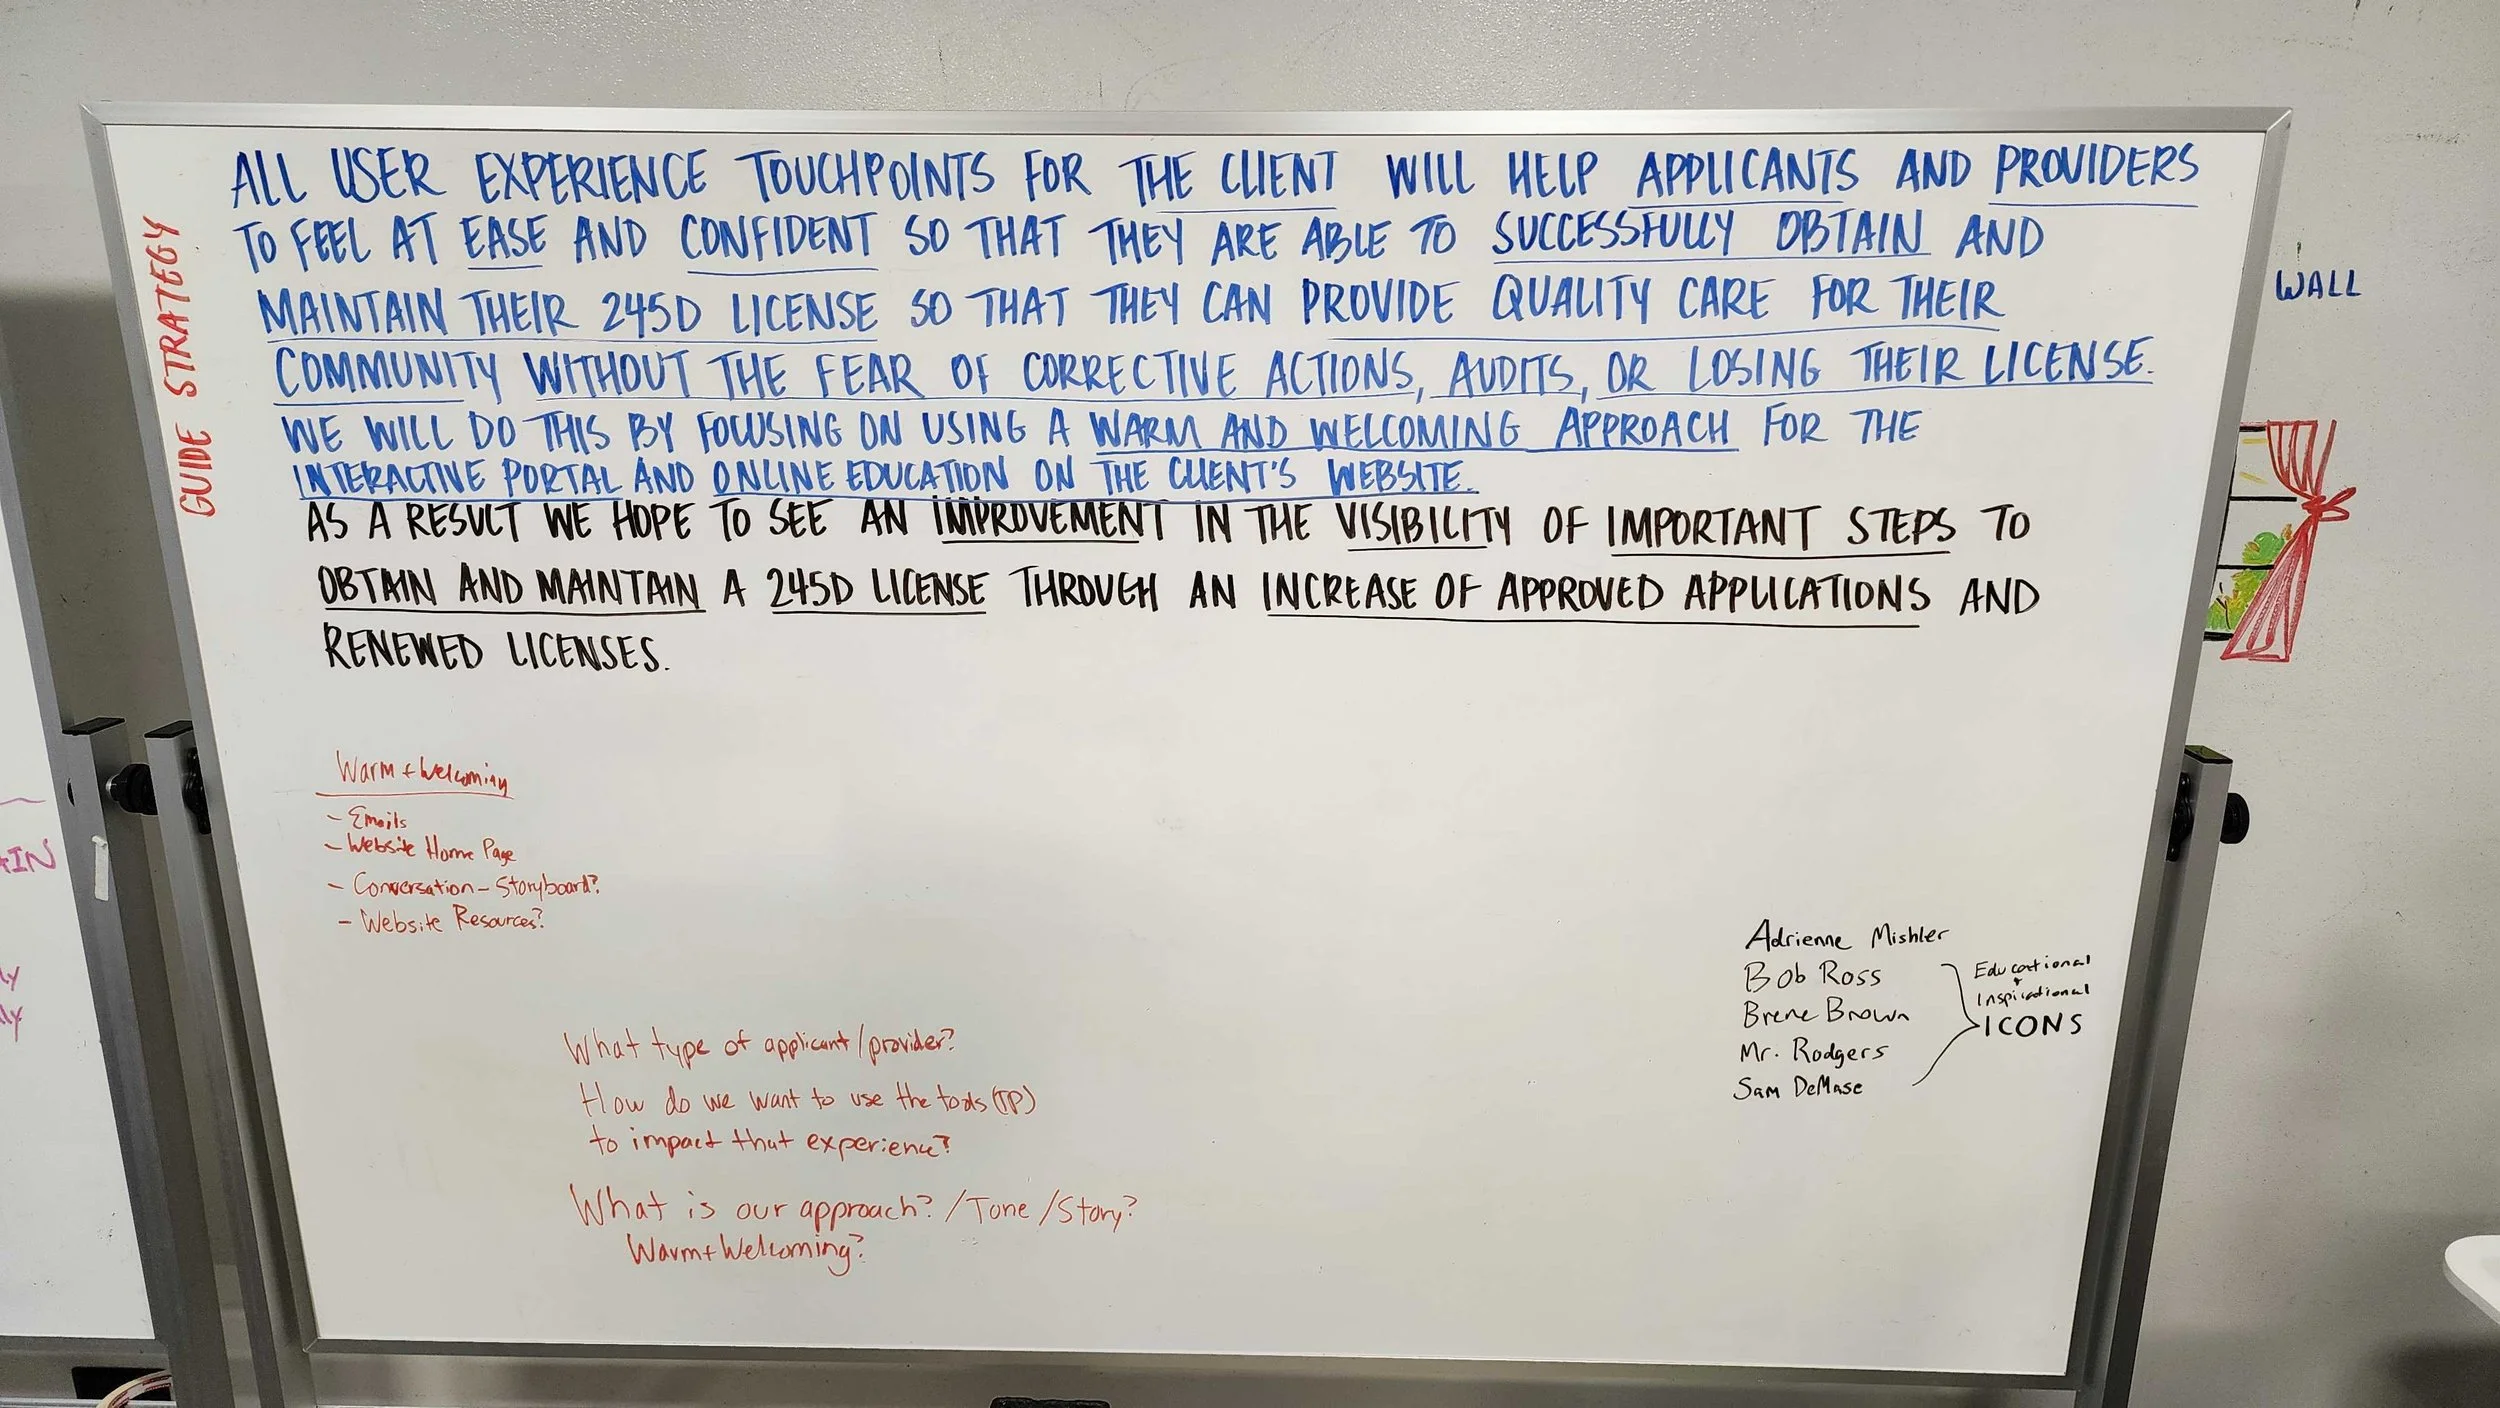 GUIDE STRATEGY
ALL USER EXPERIENCE TOUCHPOINTS FOR THE CLIENT WILL HELP APPLICANTS AND PROVIDERS
TO FEEL AT EASE AND CONFIDENT SO THAT THEY ARE ABLE TO SUCCESSFULLY OBTAIN AND
MAINTAIN THEIR 245D LICENSE SO THAT THEY CAN PROVIDE QUALITY CARE FOR THEIR
COMMUNITY WITHOUT THE FEAR OF CORRECTIVE ACTIONS, AUDITS, OR LOSING THEIR LICENSE.
WE WILL DO THIS BY FOCUSING ON USING A WARM AND WELCOMING APPROACH FOR THE
INTERACTIVE PORTAL AND ONLINE EDUCATION ON THE CLIENT'S WEBSITE.
AS A RESULT WE HOPE TO SEE AN IMPROVEMENT IN THE VISIBILITY OF IMPORTANT STEPS TO
OBTAIN AND MAINTAIN A 245D LICENSE THROUGH AN INCREASE OF APPROVED APPLICATIONS AND
RENEWED LICENSES.
WALL
Warm + Welcoming
- Emails
- Website Home Page
- Conversation - Storyboard?
- Website Resources?
What type of applicant/provider?
How do we want to use the tools (TP)
to impact that experience?
What is our approach? /Tone /Story?
Warm + Welcoming?
Adrienne Mishler
Bob Ross
Brene Brown
Mr. Rodgers
Sam DeMase
Educational
+
Inspirational
ICONS